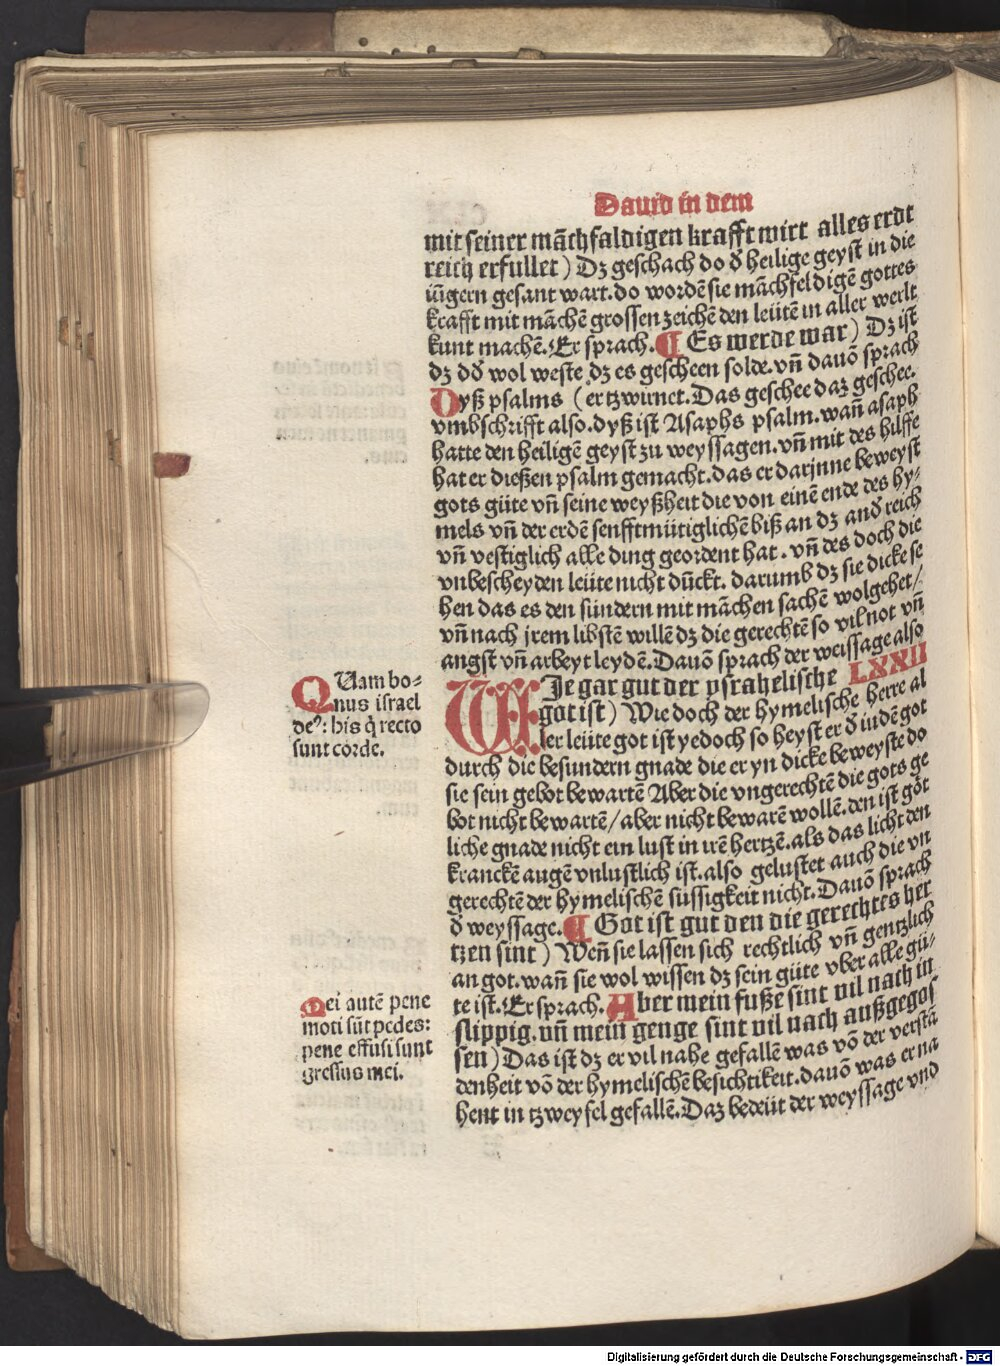 Dauid in dem
mit seiner mãchfaldigen krafft wirt alles erdt
reich erfullet) Dz geschach do d̕ heilige geyst in die
iũgern gesant wart. do wordẽ sie mãchfeldigẽ gottes
krafft mit mãchẽ grossen zeichẽ den leütẽ in aller werlt
kunt machẽ. Er sprach. ¶ Es werde war) Dz ist
dz d̕d̕ wol weste dz es gescheen solde. vñ dauõ sprach
Dyß psalms (er tzwirnet. Das geschee daz geschee.
vmbschrifft also. dyß ist Asaphs psalm. wañ asaph
hatte den heiligẽ geyst zu weyssagen. vñ mit des hilffe
hat er dießen psalm gemacht. das er darjnne beweyst
gots güte vñ seine weyßheit die von einẽ ende des hy⸗
mels vñ der erdẽ senfftmütiglichẽ biß an dz and̕ reich
vñ vestiglich alle ding geordent hat. vñ des doch die
vnbescheyden leüte nicht dückt. darumb dz sie dicke se
hen das es den sündern mit mãchen sachẽ wolgehet/
vñ nach jrem libstẽ willẽ dz die gerechtẽ so vil not vñ
angst vñ arbeyt leydẽ. Dauõ sprach der weissage also
LXXII
WJe gar gut der ysrahelische
got ist) Wie doch der hymelische herre al
ler leüte got ist yedoch so heyst er d̕ iudẽ got
durch die besundern gnade die er yn dicke beweyste do
sie sein gebot bewartẽ Aber die vngerechtẽ die gots ge
bot nicht bewartẽ/ aber nicht bewarẽ wollẽ. den ist göt
liche gnade nicht ein lust in irẽ hertzẽ. als das licht den
kranckẽ augẽ vnlustlich ist. also gelustet auch die vn
gerechtẽ der hymelischẽ süssigkeit nicht. Dauõ sprach
d̕ weyssage. ¶ Got ist gut den die gerechtes her
tzen sint) Weñ sie lassen sich rechtlich vñ gentzlich
an got. wañ sie wol wissen dz sein güte vber alle gü⸗
te ist. Er sprach. Aber mein fuße sint vil nach in
slippig. vñ mein genge sint vil nach außgegos
sen) Das ist dz er vil nahe gefallẽ was võ der verstã
denheit võ der hymelischẽ besichtikeit. dauõ was er na
hent in tzweyfel gefallẽ. Daz bedeüt der weyssage vnd
QUam bo⸗
nus israel
de⁹: his q̃ recto
sunt corde.
Mei autẽ pene
moti sũt pedes:
pene effusi sunt
gressus mei.
Digitalisierung gefördert durch die Deutsche Forschungsgemeinschaft - DFG